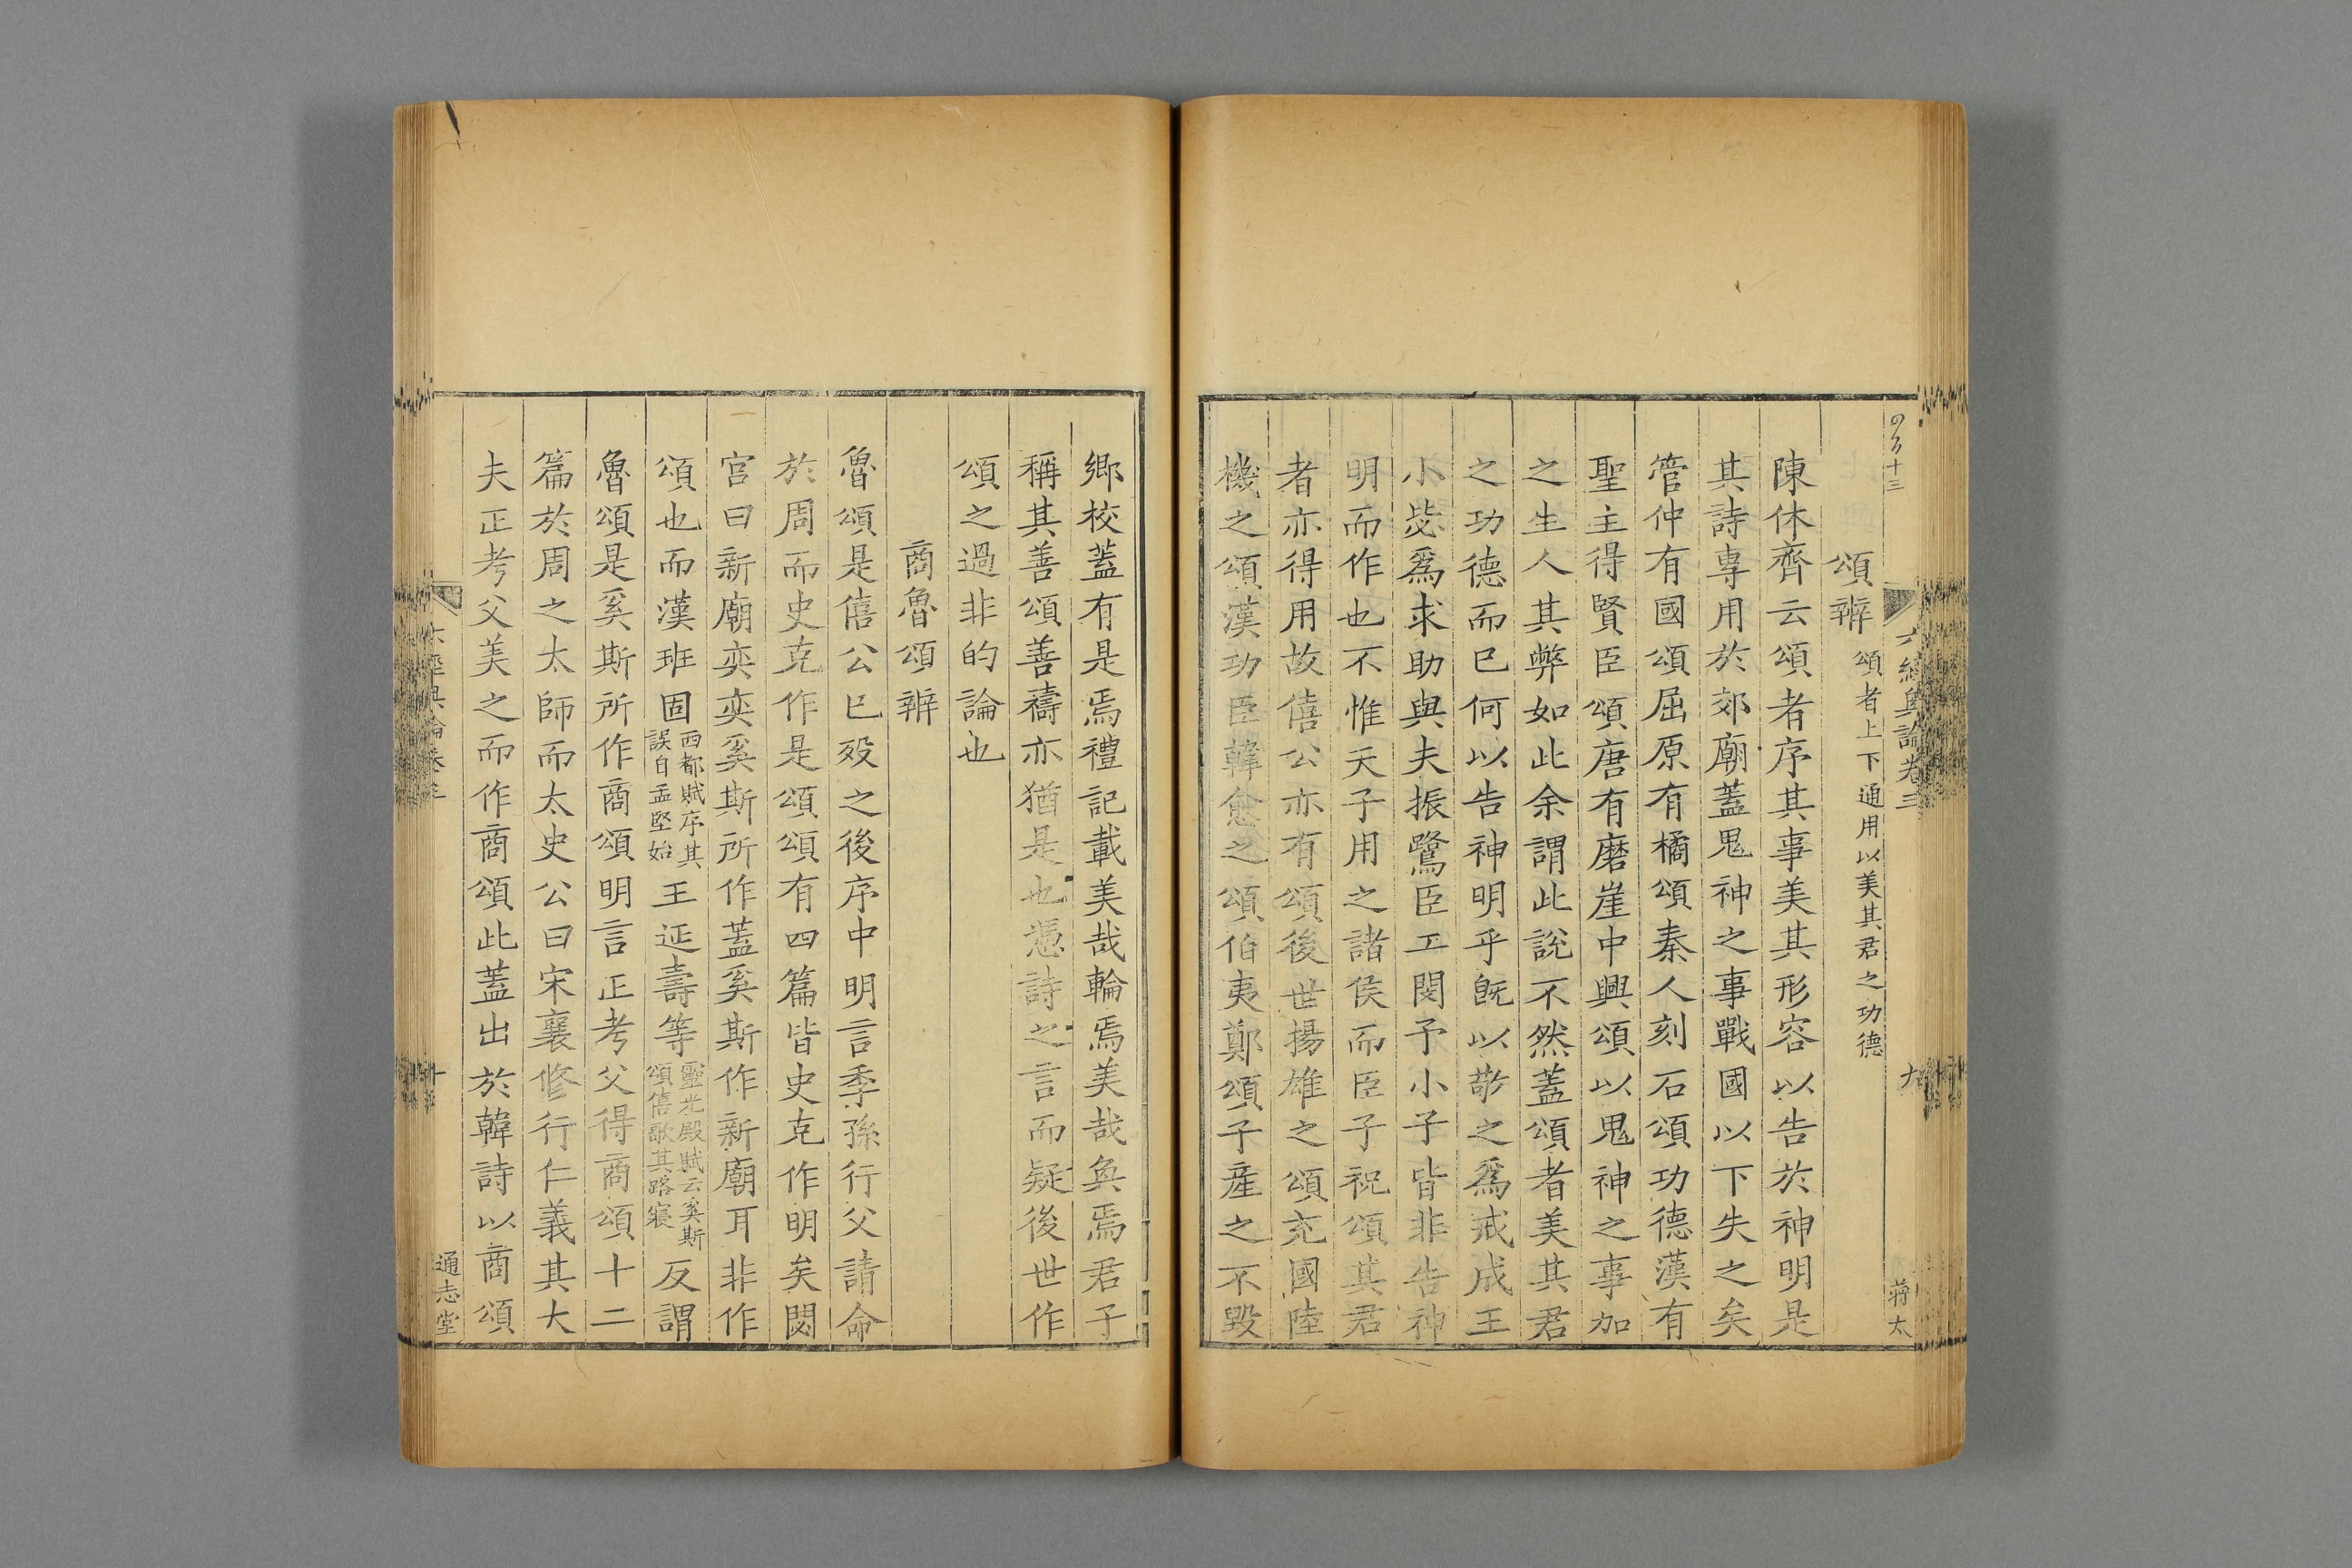 六經奧論卷三
九
蔣太
頌辨頌者上下通用以美其君之功德
陳休齊云頌者序其事美其形容以告於神明是
其詩專用於郊廟蓋鬼神之事戰國以下失之矣
管仲有國頌屈原有橘頌秦人刻石頌功德漢有
聖主得賢臣頌唐有磨崖中興頌以鬼神之事加
之生人其弊如此余謂此說不然蓋頌者美其君
之功德而已何以告神明乎旣以敬之爲戒成王
小毖爲求助與夫振鷺臣工閔予小子皆非告神
明而作也不惟天子用之諸侯而臣子祝頌其君
者亦得用故僖公亦有頌後世揚雄之頌充國陸
機之頌漢功臣韓愈之頌伯夷鄭頌子產之不毀
鄉校蓋有是焉禮記載美哉輪焉美哉奐焉君子
稱其善頌善禱亦猶是也憑詩之言而疑後世作
頌之過非的論也
商魯頌辨
魯頌是僖公已歿之後序中明言季孫行父請命
於周而史克作是頌頌有四篇皆史克作明矣閟
宮曰新廟奕奕奚斯所作蓋奚斯作新廟耳非作
頌也而漢班固西都賦序其誤自孟堅始王延壽等靈光殿賦云奚斯頌僖歌其路寢反謂
魯頌是奚斯所作商頌明言正考父得商頌十二
篇於周之太師而太史公曰宋襄修行仁義其大
夫正考父美之而作商頌此蓋出於韓詩以商頌
六經奧論卷三
十
通志堂